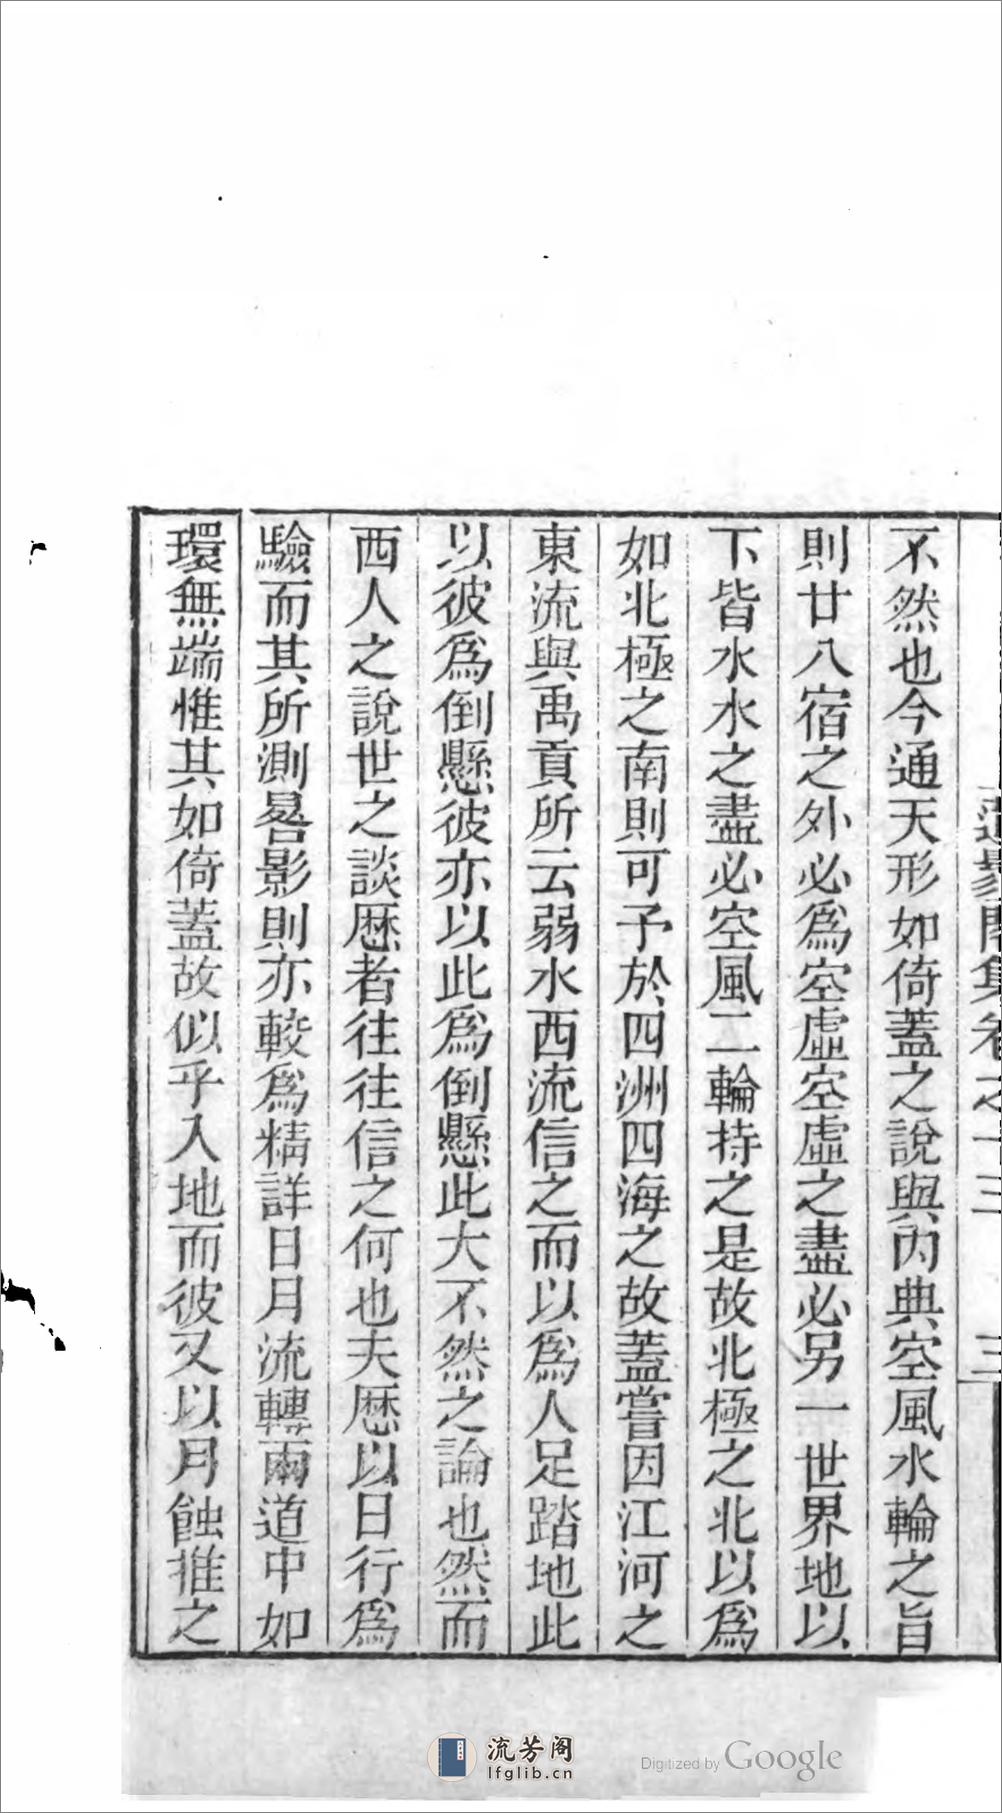 集卷之十三 三
不然也今通天形如倚蓋之說與內典空風水輪之旨
則廿八宿之外必爲空虛空虛之盡必另一世界地以
下皆水水之盡必空風二輪持之是故北極之北以爲
如北極之南則可予於四洲四海之故蓋嘗因江河之
東流與禹貢所云弱水西流信之而以爲人足踏地此
以彼爲倒懸彼亦以此爲倒懸此大不然之論也然而
西人之說世之談厯者往往信之何也夫厯以日行爲
驗而其所測晷影則亦較爲精詳日月流轉兩道中如
環無端惟其如倚蓋故似乎入地而彼又以月蝕推之
流芳阁
lfglib.cn
Digitized by Google